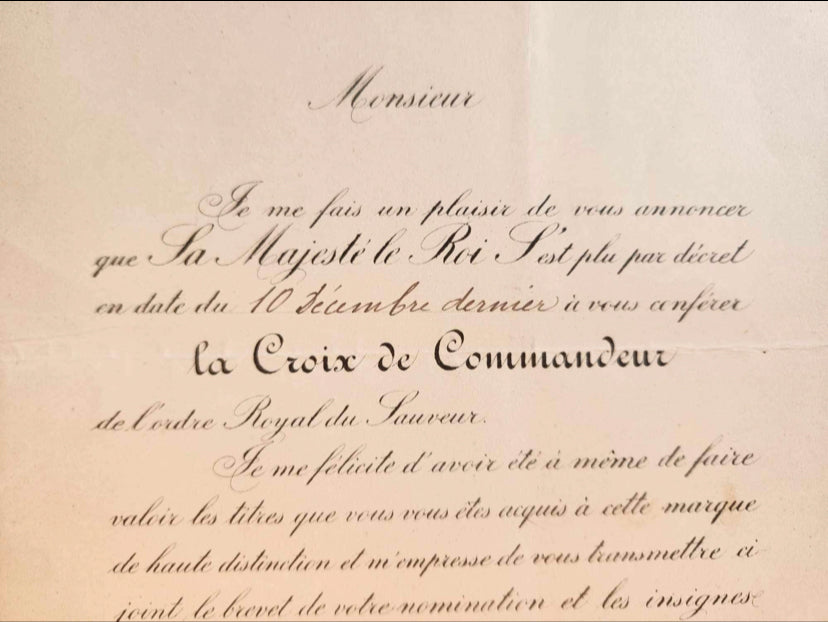 Monsieur
Je me fais un plaisir de vous annoncer
que Sa Majesté le Roi S'est plu par décret
en date du 10 Décembre dernier à vous conférer
la Croix de Commandeur
de l'ordre Royal du Sauveur.
Je me félicite d'avoir été à même de faire
valoir les titres que vous vous êtes acquis à cette marque
de haute distinction et m'empresse de vous transmettre ci
joint le brevet de votre nomination et les insignes